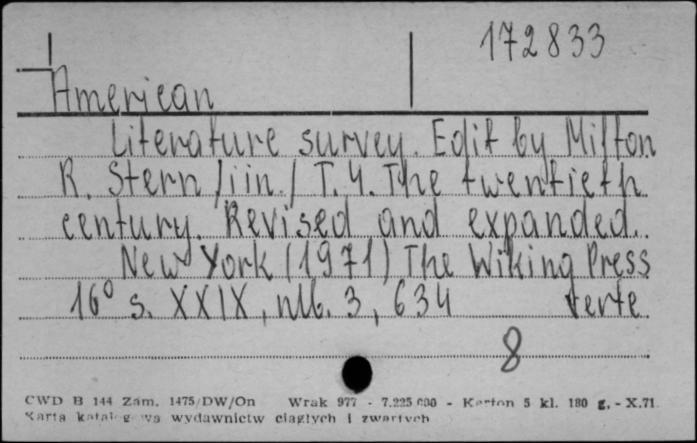 172833
American
Literature survey. Edit by Milton
R. Stern /iin./ T.4. The twentieth
century. Revised and expanded.
New York (1971) The Wiking Press
16° s. XXIX, nlb. 3, 634 verte
8
CWD B 144 Zam. 1475/DW/On Wrak 977 - 7.225.000 - Karton 5 kl. 180 g. - X.71.
Karta katalogowa wydawnictw ciągłych i zwartych